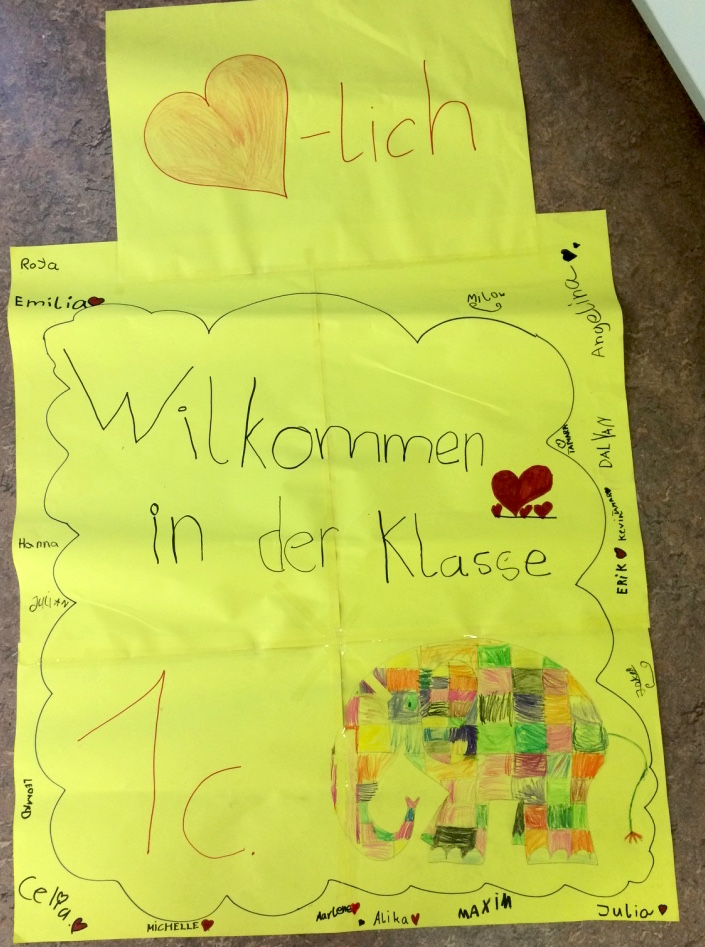 -lich
Roya
Emilia
Milow
Angelina
Wilkommen
TAMARA
DALYAN
in der Klasse
Kevin
ERIK
Hanna
JULIAN
1c.
Celia
MICHELLE
Marlene
Alika
MAXIM
Julia